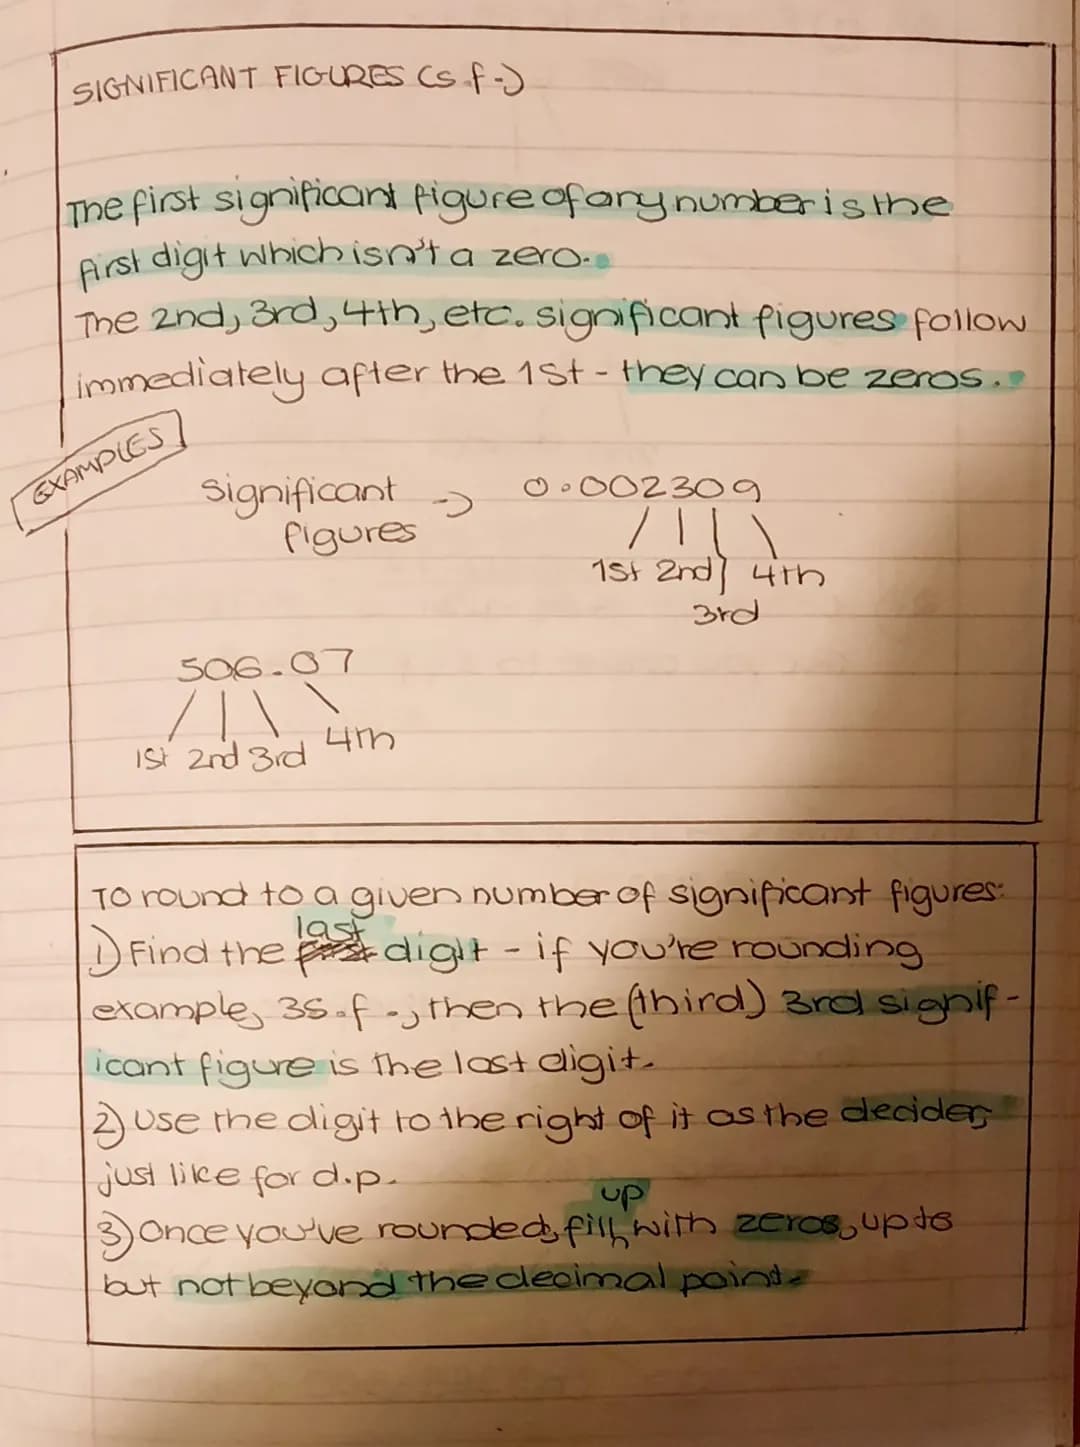 SIGNIFICANT FIGURES (s.f.)
The first significant figure of any number is the
first digit which isn't a zero.
The 2nd, 3rd, 4th, etc. significant figures follow
immediately after the 1st - they can be zeros.
EXAMPLES
Significant figures → 0.002309
1st 2nd 4th
3rd
506.07
1st 2nd 3rd 4th
To round to a given number of significant figures:
last
1) Find the first digit - if you're rounding
example, 3s.f., then the (third) 3rd signif-
icant figure is the last digit.
2) Use the digit to the right of it as the decider,
just like for d.p.
up
3) Once you've rounded, fill with zeros, up to
but not beyond the decimal point.